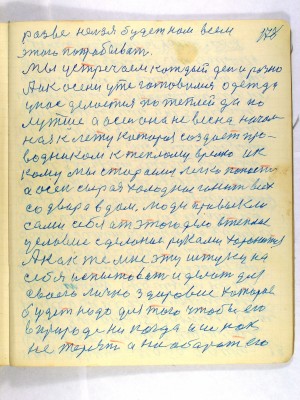 разве нельзя будет нам всем
этого пот побывать.
Мы устречаем каждый ден и разно
А как осени уже готовимся одежда
у нас делается по теплей да по
лучше а осен она не весна начал
ная к лету которая создает про-
водником к теплому время и к
кому мы старались легко
а осен сырая холодная гонит всех
со двора в дом. люди привыкли
сами себя от этого дело в теплое
условие сделание руками хоронится
А как же мне эту штуку на
себя испытоват и делат для
своего лично здоровие которое
будет надо для того чтобы его
в природе ни когда и не как
не терят а на оборот его